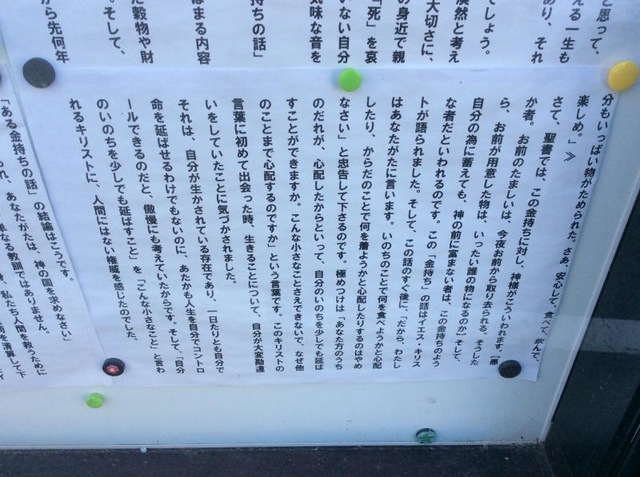 と思って、
える一生も
あり、それ
でしょう。
漠然と考え
大切さに、
の身近で親
「死」を哀
いない自分
気味な音を
持ちの話」
はまる内容
た穀物や財
。そして、
から先何年
分もいっぱい物がためられた。さあ、安心して、食べて、飲んで、
楽しめ。」》
さて、聖書では、この金持ちに対し、神様がこういわれます。【愚
か者。お前のたましいは、今夜お前から取り去られる。そうした
ら、お前が用意した物は、いったい誰の物になるのか】そして、
自分の為に蓄えても、神の前に富まない者は、この金持ちのよう
な者だといわれるのです。この「金持ち」の話はイエス・キリス
トが語られました。そして、この話のすぐ後に、「だから、わたし
はあなたがたに言います。いのちのことで何を食べようかと心配
したり、からだのことで何を着ようかと心配したりするのはやめ
なさい」と忠告して下さるのです。極めつけは「あなた方のうち
のだれが、心配したからといって、自分のいのちを少しでも延ば
すことができますか。こんな小さなことさえできないで、なぜ他
のことまで心配するのですか」という言葉です。このキリストの
言葉に初めて出会った時、生きることについて、自分が大変勘違
いをしていたことに気づかされました。
それは、自分が生かされている存在であり、一日たりとも自分で
命を延ばせるわけでもないのに、あたかも人生を自分でコントロ
ールできるのだと、傲慢にも考えていたからです。そして、「自分
のいのちを少しでも延ばすこと」を「こんな小さなこと」と言わ
れるキリストに、人間にはない権威を感じたのでした。
「ある金持ちの話」の結論はこうです。
あなたがたは、神の国を求めなさい」
単なる教訓ではありません。
、私たち人間を救うために